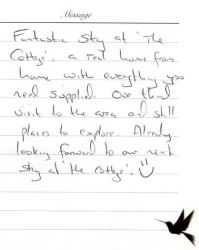 Message
Fantastic stay at 'The
Cottge', a real home from
home with everything you
need supplied. Our third
visit to the area and still
places to explore. Already
looking forward to our next
stay at 'the cottge'.